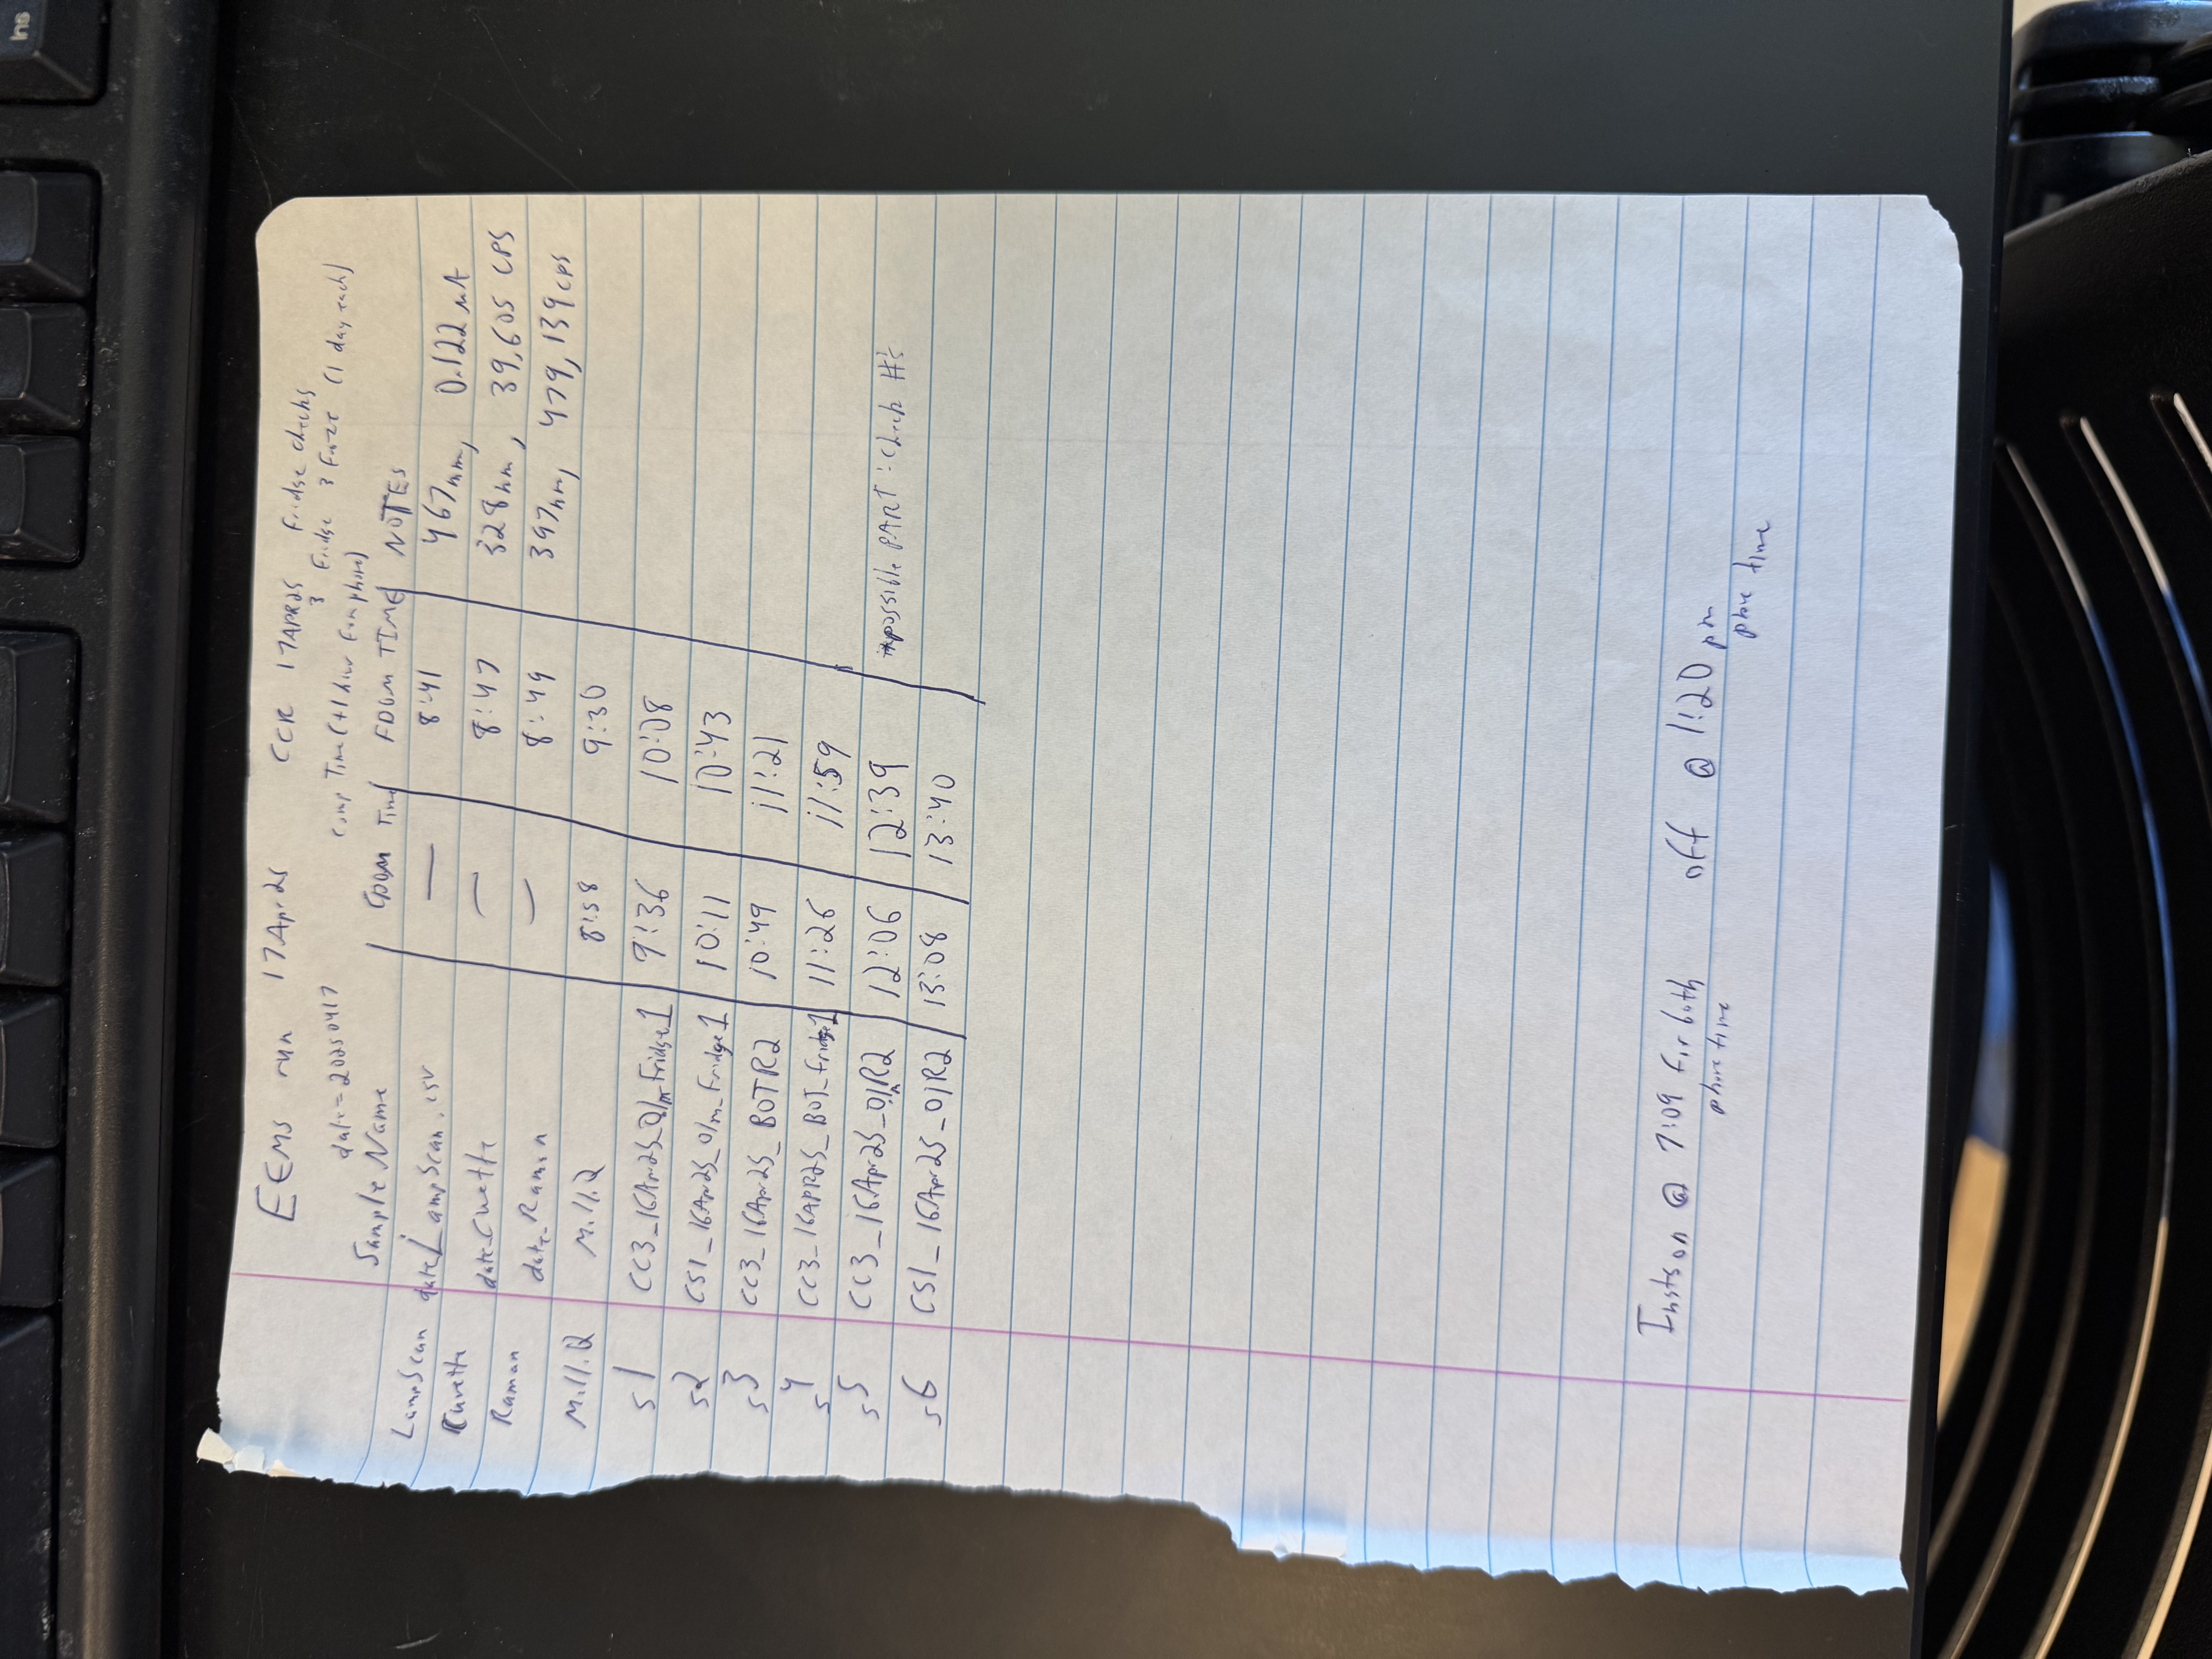 Ins
EEMs run 17Apr25 CCR 17APR25 Fridge checks
3 Fridge 3 Froze (1 day each)
date=20250417 Comp Time (+1 hour from phone)
Sample Name CDOM Time FDOM TIME NOTES
LampScan date_LampScan.csv — 8:41 467nm, 0.122 µA
Cuvette date_Cuvette — 8:47 328nm, 39,605 CPS
Raman date_Raman — 8:49 397nm, 479,139 cps
Milli.Q Milli.Q 8:58 9:30
s1 CC3_16Apr25_0.1m_Fridge1 9:36 10:08
s2 CS1_16Apr25_01m_Fridge1 10:11 10:43
s3 CC3_16Apr25_BOTR2 10:49 11:21
s4 CC3_16APR25_BOT_fridge1 11:26 11:59
s5 CC3_16Apr25_0.1R2 12:06 12:39 *possible PART: check #'s
s6 CS1_16Apr25_01R2 13:08 13:40
Insts on @ 7:09 for both off @ 1:20 pm
phone time phone time